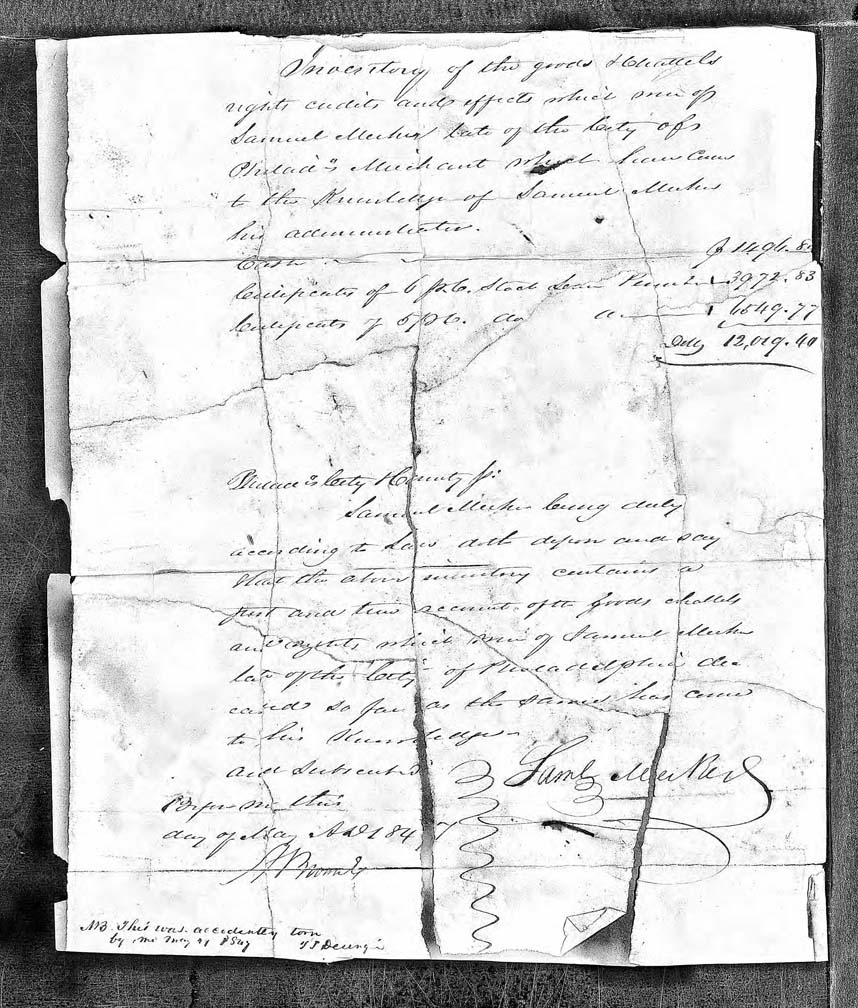 Inventory of the goods & Chattels
rights credits and effects which were of
Samuel Meeker late of the City of
Philad.a Merchant which have come
to the Knowledge of Samuel Meeker
his administrator.
Cash $ 1496.80
Certificates of 6 p.C. Stock Loan 3972.83
Certificate of 5 p.C. do do 6549.77
Dolls 12,019.40
Philad.a City & County Ss:
Samuel Meeker being duly
according to Law doth depose and say
that the above inventory contains a
just and true account of the goods chattels
and credits which were of Samuel Meeker
late of the City of Philadelphia dec
eased so far as the same has come
to his Knowledge
and Subscribed
Before me this
day of May AD 1847
Saml Meeker
NB. This was accidentely torn
by me May 21 1847